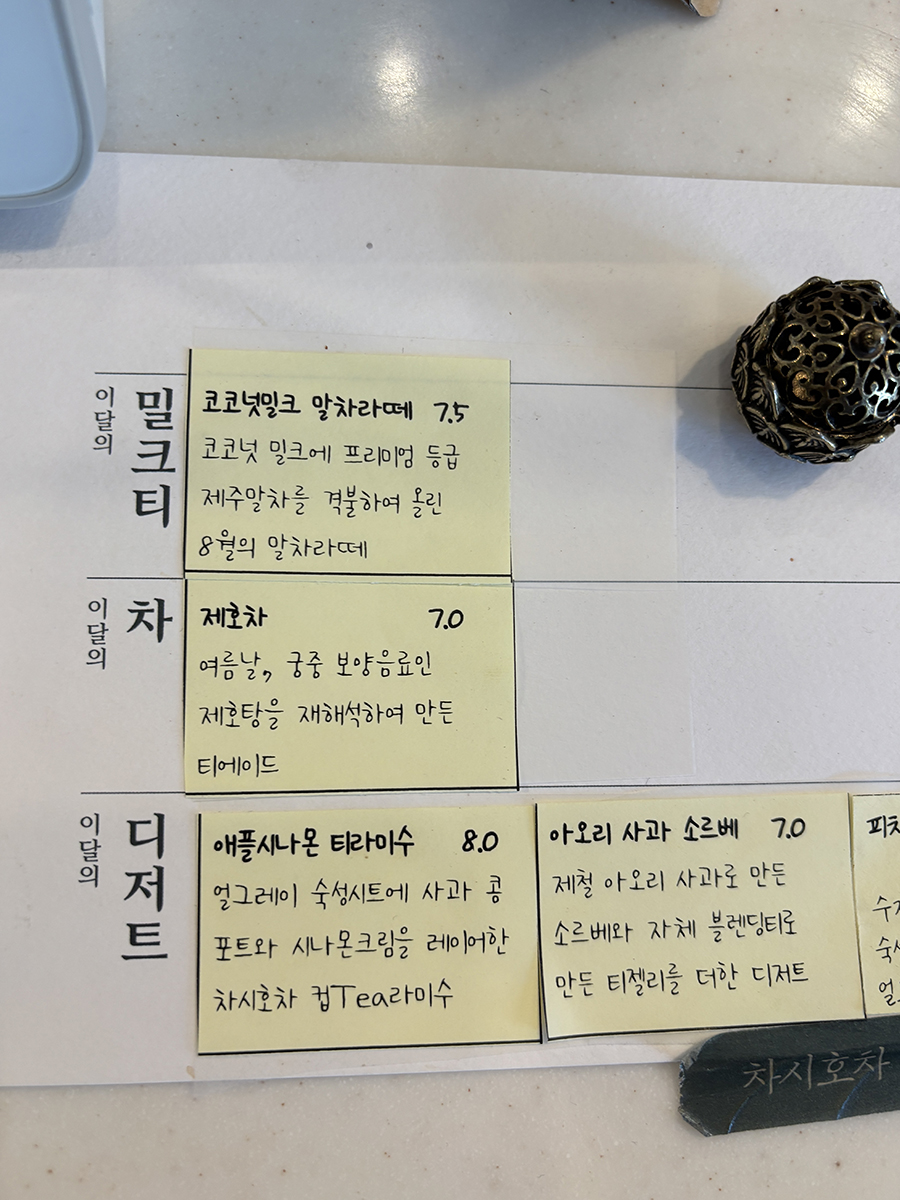 이달의
밀크티
코코넛밀크 말차라떼 7.5
코코넛 밀크에 프리미엄 등급
제주말차를 격불하여 올린
8월의 말차라떼
이달의
차
제호차 7.0
여름날, 궁중 보양음료인
제호탕을 재해석하여 만든
티에이드
이달의
디저트
애플시나몬 티라미수 8.0
얼그레이 숙성시트에 사과 콩
포트와 시나몬크림을 레이어한
차시호차 컵Tea라미수
아오리 사과 소르베 7.0
제철 아오리 사과로 만든
소르베와 자체 블렌딩티로
만든 티젤리를 더한 디저트
피치
숙
얼
차시호차